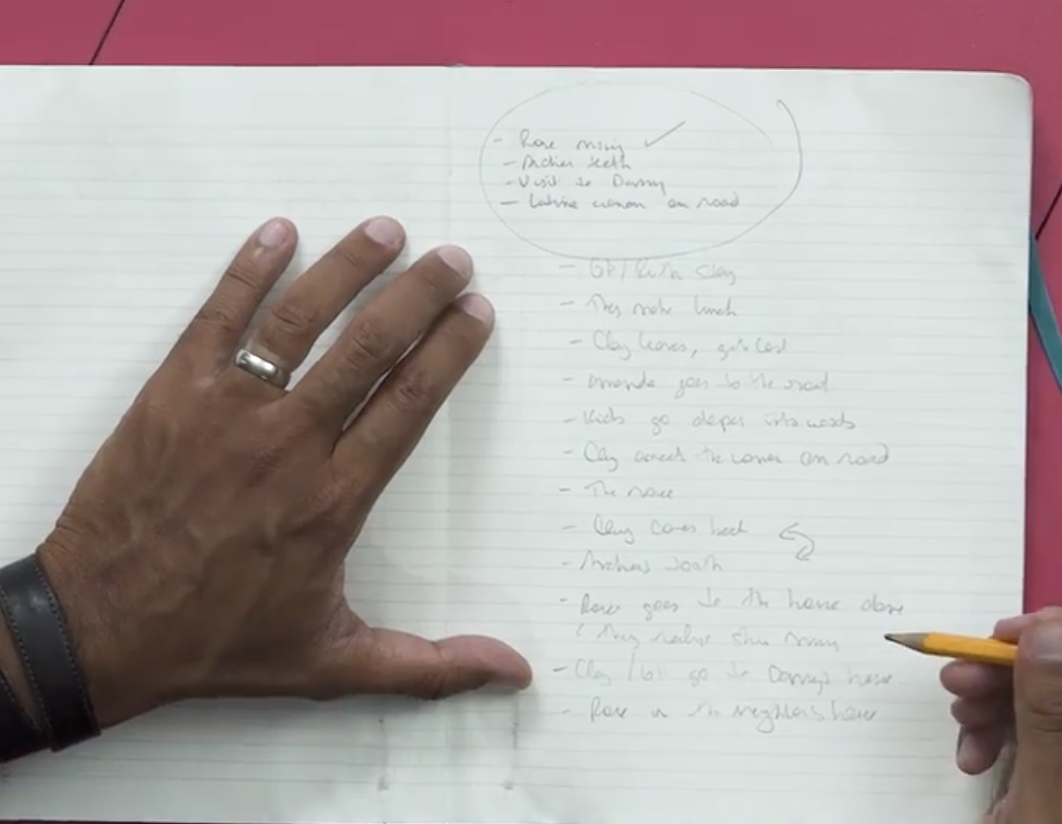 - Rose missing
- Archies teeth
- Visit to Danny
- Latina woman on road
- GH / Ruth Clay
- They make lunch
- Clay leaves, gets lost
- Amanda goes to the road
- Kids go deeper into woods
- Clay the woman on road
- The noise
- Clay comes back
- Archies tooth
- Rose goes to the house alone
They realise shes missing
- Clay / GH go to Danny's house
- Rose in the neighbors house